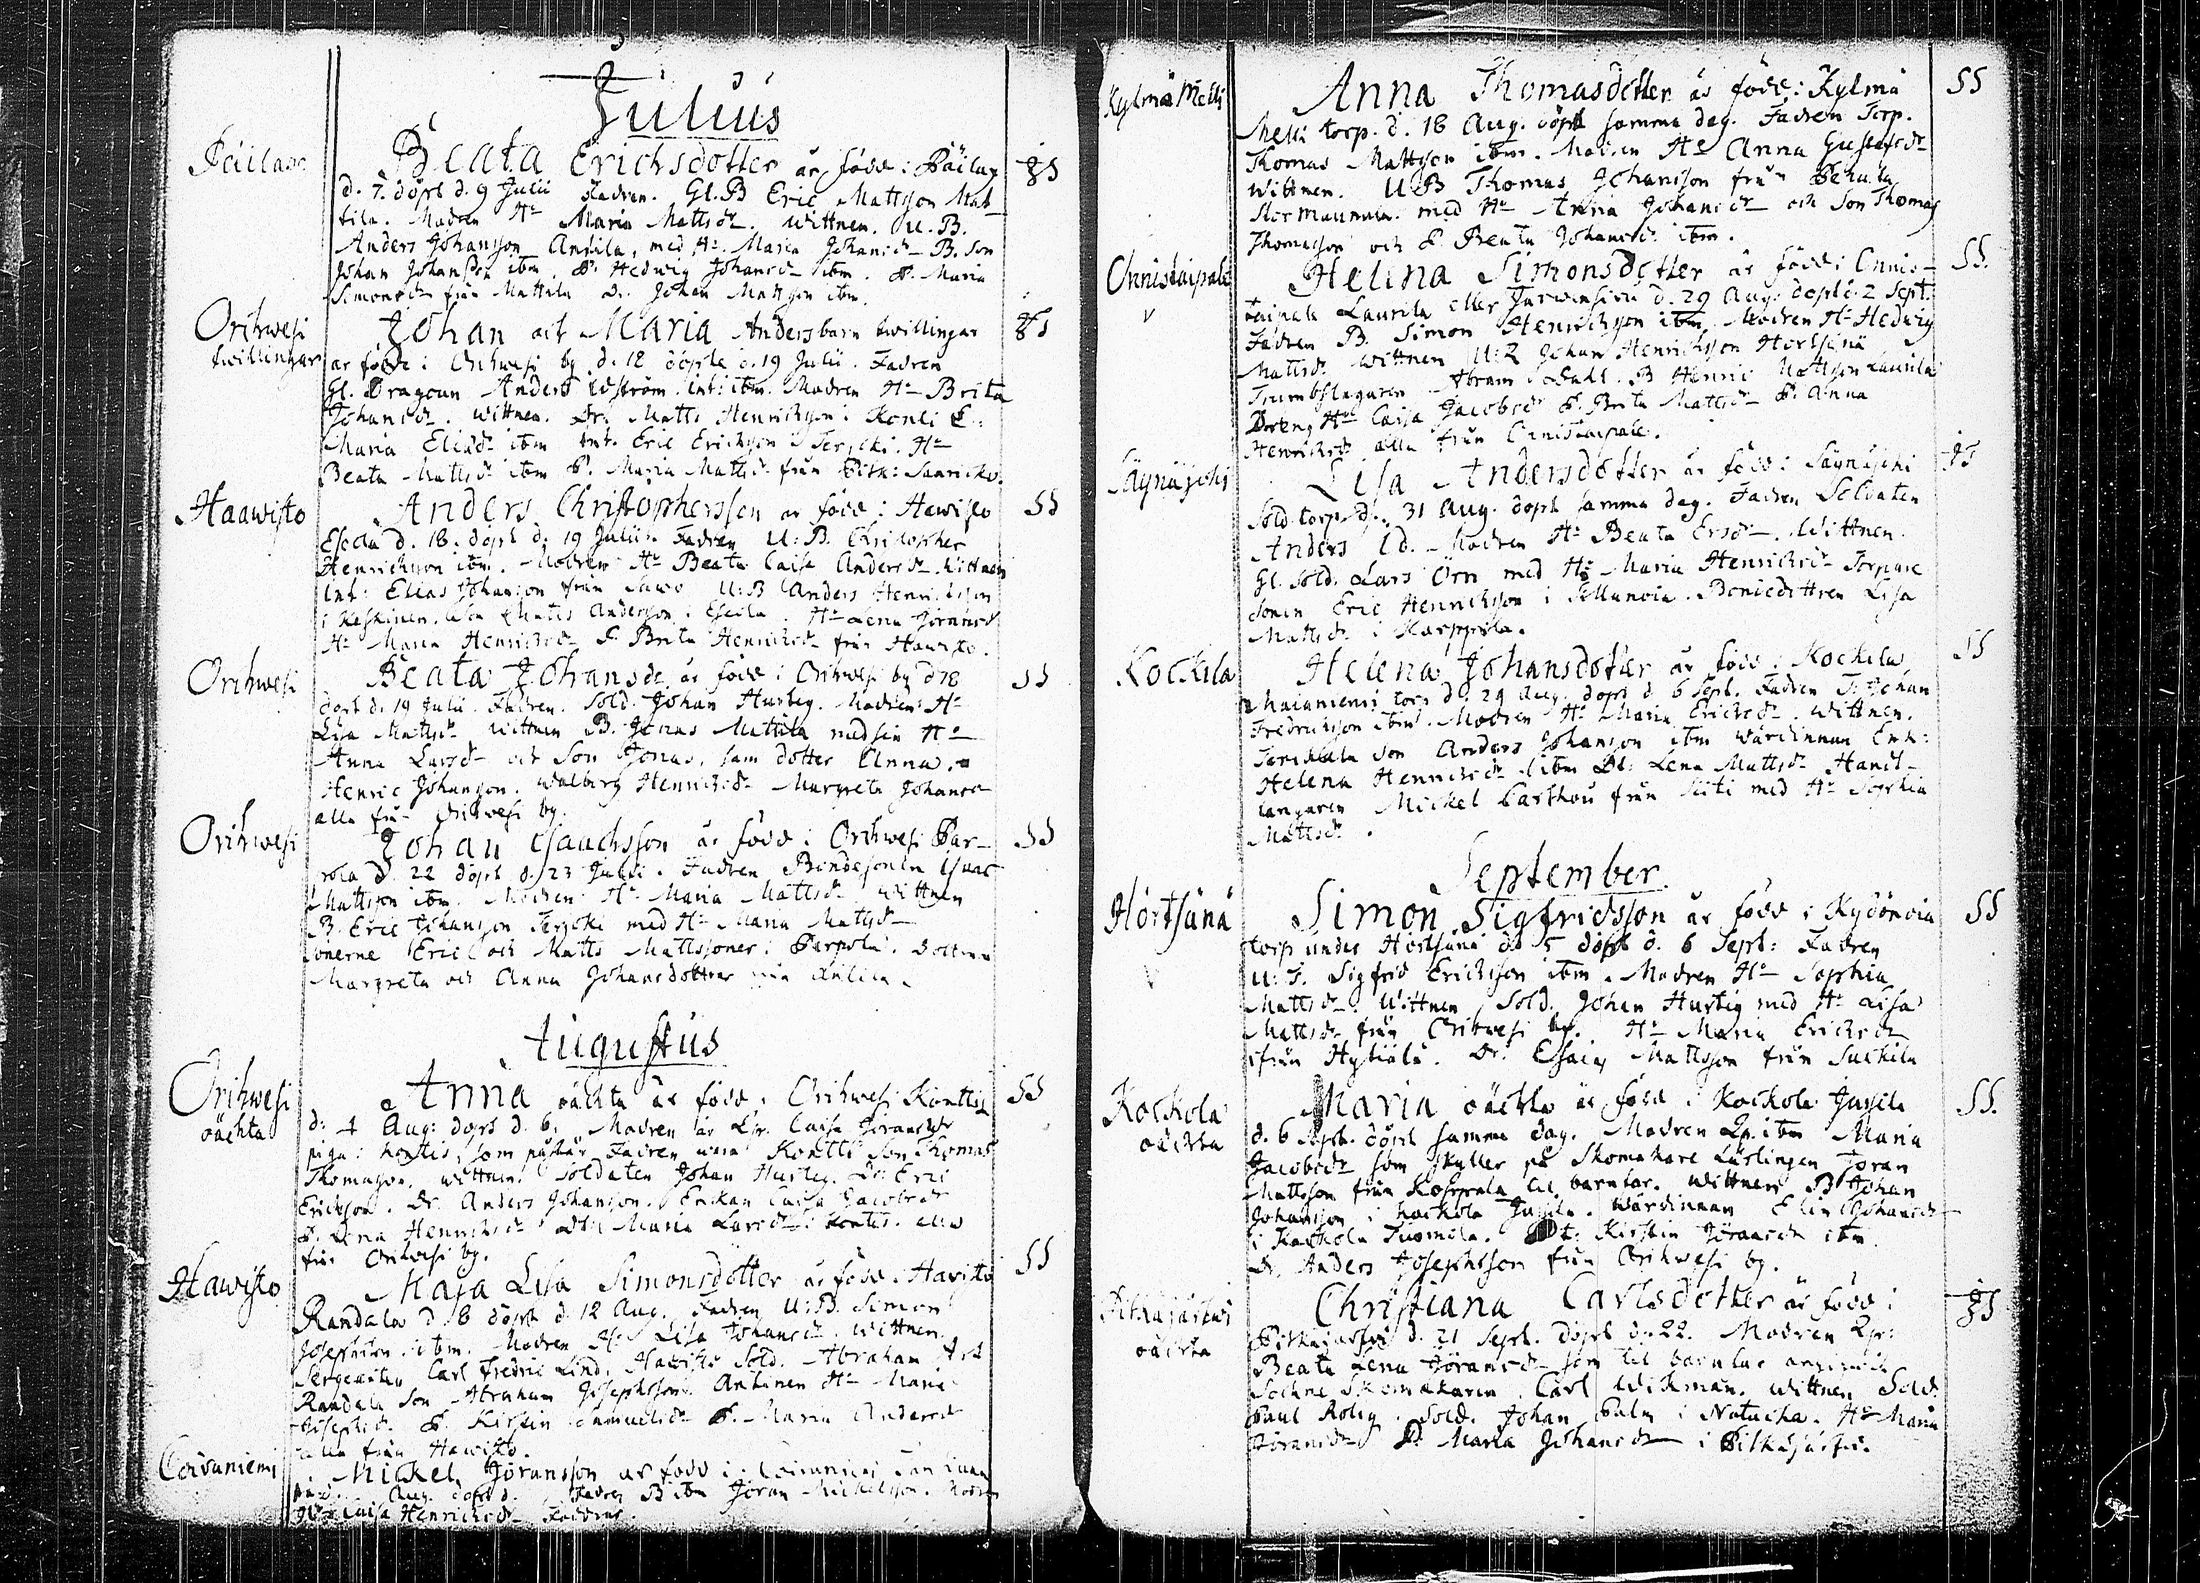 Julius
Päilax
Beata Erichsdotter är född i Päilax
d. 7. döpt d. 9 Julii Fadren. Gl. B Eric Mattsson Mat-
tila. Modren Hu Maria Mattsdr. Wittnen. U. B.
Anders Johansson Anttila, med Hu Maria Johansdr B. Son
Johan Johansson ibm. P. Hedwig Johansdr ibm. P. Maria
Simonsdr från Mattila Dr. Johan Mattsson ibm.
Orihwesi
twillingar
Johan och Maria Andersbarn twillingar
är födde i Orihwesi by d. 18 döpte d. 19 Julii. Fadren
Gl. Dragoun Anders Edström inh: ibm. Modren Hu Brita
Johansdr. Wittnen. Dr. Matts Henricksson i Kontti P.
Maria Eliædr ibm Inh. Eric Ericksson i Terjcki. Hu
Beata Mattsdr ibm P. Maria Mattsdr från
Haawisto
SS
Anders Christophersson är född i Hawisto
Eskola d. 18. döpt d. 19 Julii. Fadren U: B. Christopher
Henricksson ibm. Modren Hu Beata Caisa Andersdr. Wittnen
Inh: Elias Johansson från Sawo U: B Anders Henricksson
i Keskinen. Andersson i Hu Lena
Hu Maria Henricksdr P. Brita Henricksdr från Hawisto.
Orihwesi
SS
Beata Johansdr är född i Orihwesi by d 18
döpt d. 19 Julii. Fadren. Sold. Johan Hurtig. Modren Hu
Lisa Mattsdr Wittnen B. Jonas Mattila med sin Hu
Anna Larsdr och Son Jonas, sam dotter Anna.
Henric Johansson. Walborg Henricksdr Margreta Johansdr
alla från Orihwesi by.
Orihwesi
SS
Johan Isaachsson är född i Orihwesi Par-
rola d. 22 döpt d. 23 Julii. Fadren Bondesonen Isaac
Mattsson ibm. Modren Hu Maria Mattsdr Wittnen
B. Eric Johansson Terjcki med Hu Maria Mattsdr
sönerne Eric och Matts Mattssöner i Parpola. Döttrarna
Margreta och Anna Johansdöttrar från Anttila.
Augustus
Orihwesi
oächta
SS
Anna oächta är född i Orihwesi Konttila
d. 4 Aug: döpt d. 6. Modren är Lpr. Caisa Göransdr
piga i Kontti, som påstår Fadren wara Kontti Son Thomas
Thomasson. Wittnen Soldaten Johan Hurtig. Dr: Eric
Ericksson. Dr. Anders Johansson. Enkan Caisa Jacobsdr
P. Lena Henricksdr Dtr Maria Larsdr i Kontti. alla
från Orihwesi by.
Hawisto
SS
Maja Lisa Simonsdotter är född i Hawisto
Randala d 8 döpt d. 12 Aug. Fadren U: B. Simon
Josephsson ibm. Modren Hu Lisa Johansdr. Wittnen
Sergeanten Carl Fredric Lind, Hawisto Sold. Abraham
Randala Son Abraham Josephsson Antinen Hu Maria
Josephsdr P. Kirstin Samuelsdr P. Maria Andersdr
alla från Hawisto.
Coivuniemi
Mickel Göransson är född i Coivuniemi
Aug. döpt d. Fadren B ibm Göran Mickelsson. Modren
Hu Caisa Henricksdr Faddrar.
Kylmä Melli
SS
Anna Thomasdotter är född i Kylmä
Melli torp. d. 18 Aug. döpt samma dag. Fadren Torp.
Thomas Mattsson ibm. Modren Hu Anna Gustafsdr
Wittnen. U. B Thomas Johansson från
Stor Maunula med Hu Anna Johansdr och Son Thomas
Thomasson och P Beata Johansdr ibm.
Onnistaipale
SS.
Helena Simonsdotter är född i Onnis-
taipale Laurila eller d. 29 Aug. döpt d. 2 Sept.
Fadren B. Simon Henricksson ibm. Modren Hu Hedwig
Mattsdr Wittnen U: R Johan Henricksson Hörtsänä
Trumbslagaren Abram Dahl. B Henric Mattsson Laurila
Hu Caisa Jacobsdr P. Brita Mattsdr P. Anna
Henricksdr alla från Onnistaipale.
Säynäjoki
Lisa Andersdotter är född i Säynäjoki
Sold. torp d. 31 Aug. döpt samma dag. Fadren Soldaten
Anders Ed. Modren Hu Beata Ersdr. Wittnen
Gl. Sold. Lars Örn med Hu Maria Henricksdr Torpare
Sonen Eric Henricksson i Bondedottren Lisa
Mattsdr i Karppila.
Kockila
SS
Helena Johansdotter är född i Kockila
torp d. 29 Aug. döpt d. 6 Sept. Fadren T: Johan
Fredricksson ibm. Modren Hu Maria Ericksdr. Wittnen.
Son Anders Johansson ibm Wärdinnan Enk:
Helena Henricksdr ibm Dt. Lena Mattsdr Handt-
langaren Mickel Carthou från Siiti med Hu Sophia
Mattsdr.
September
Hörtsänä
SS
Simon Sigfridsson är född i Kydönoia
torp under Hörtsänä d. 5 döpt d. 6 Sept: Fadren
U: T. Sigfrid Ericksson ibm. Modren Hu Sophia
Mattsdr. Wittnen Sold. Johan Hurtig med Hu Lisa
Mattsdr från Orihwesi by. Hu Maria Ericksdr
ifrån Hytiälä. Dr. Esaias Mattsson från Suckila
Kockola
oächta
SS.
Maria oächta är född i Kockola Jussila
d. 6 Sept. döpt samma dag. Modren Lp. ibm Maria
Jacobsdr som skyller på Skomakare Lärlingen Göran
Mattsson från Koppala til barnfar. Wittnen B Johan
Johansson i Kockola Jussila. Wärdinnan Elin Johansdr
i Kockola Tuomola. Dt: Kirstin Göransdr ibm
Dr. Anders Josephsson från Orihwesi by.
Pitkäjärwi
oächta
Christiana Carlsdotter är född i
Pitkäjärwi d. 21 Sept. döpt d. 22. Modren Lpr:
Beata Lena Göransdr som til barnfar angifwit
Sochne Skomakaren Carl Wikman. Wittnen Sold.
Paul Rolig. Sold. Johan Palm i Hu Maria
Göransdr P. Maria Johansdr i Pitkäjärwi.